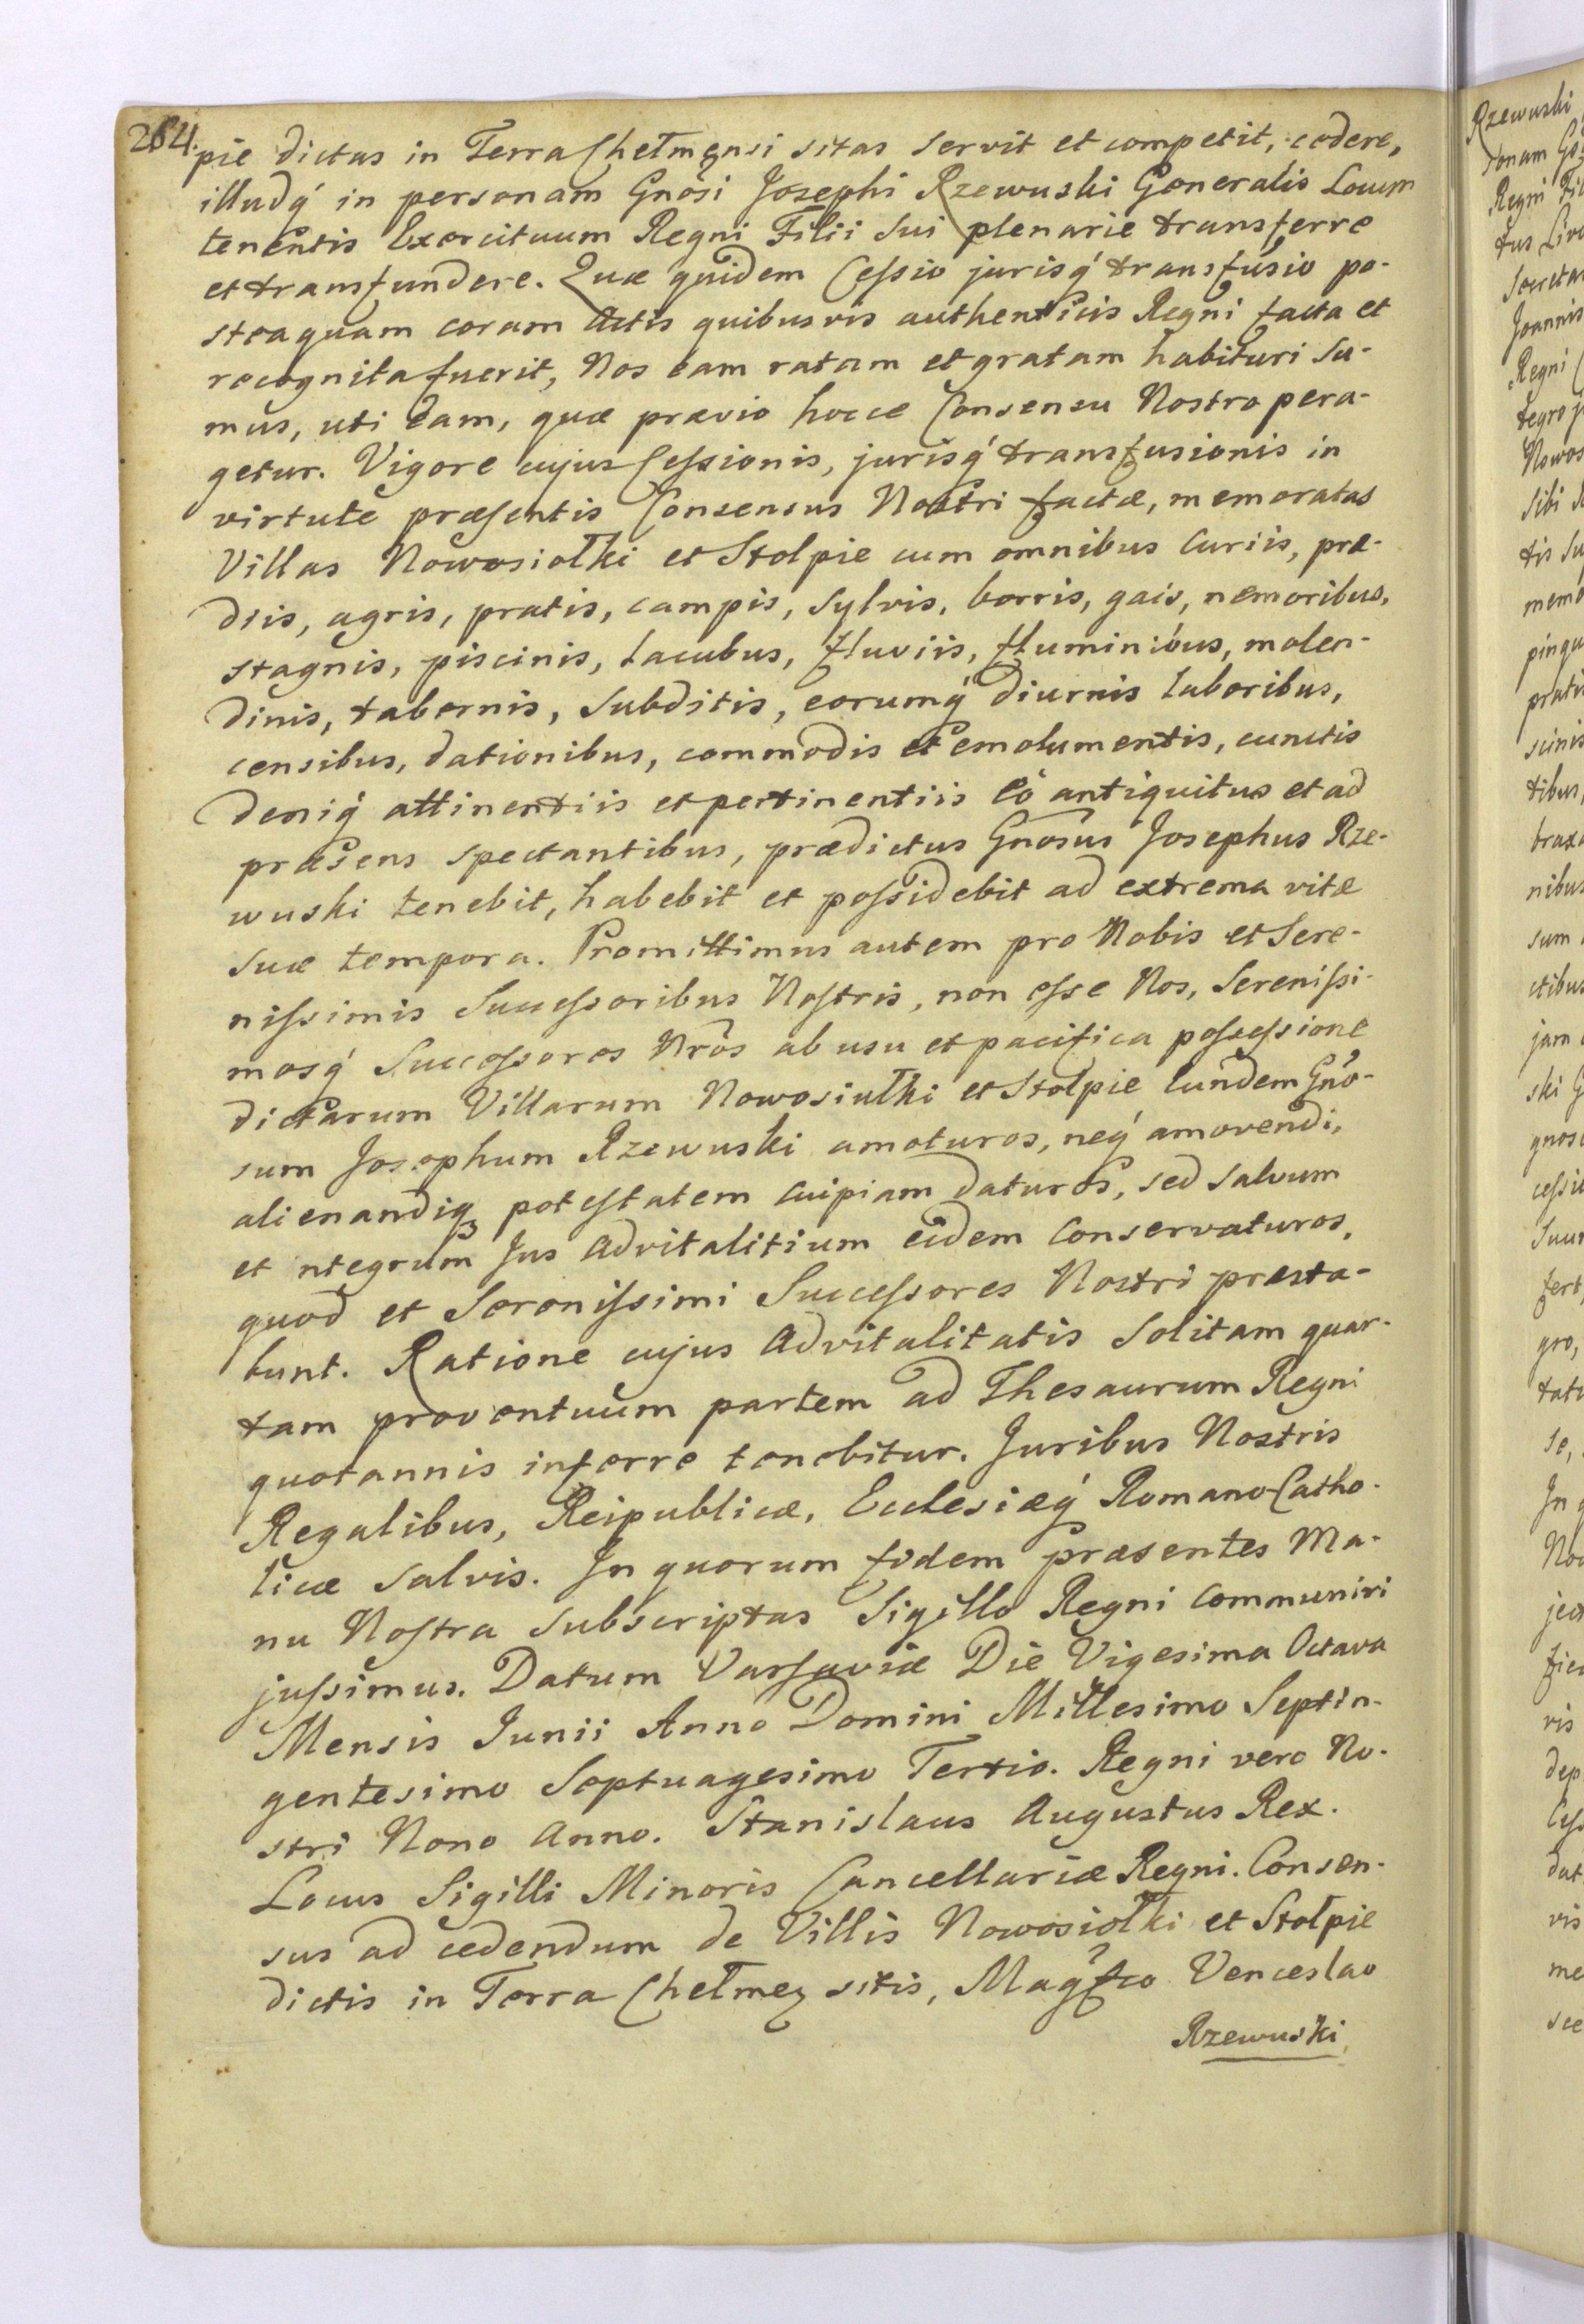 264.
pie dictas in Terra Chełmensi sitas servit et competit, cedere,
illudq́ in personam Gnŏsi Josephi Rzewuski Generalis Locum
tenentis Exercituum Regni Filii Sui plenarie transferre
et transfundere. Quæ quidem Cessio jurisq́ transfusio po-
steaquam coram Actis quibusvis authenticis Regni facta et
recognita fuerit, Nos eam ratam et gratam habituri Su-
mus, uti eam, quæ prævio hocce Consensu Nostro pera-
getur. Vigore cujus Cessionis, jurisq́ transfusionis in
virtute præsentis Consensus Nostri factæ, memoratas
Villas Nowosiołki et Stolpie cum omnibus Curiis, præ-
diis, agris, pratis, campis, Sylvis, borris, gais, nemoribus,
stagnis, piscinis, lacubus, fluviis, fluminibus, molen-
dinis, tabernis, Subditis, eorumq́ diurnis laboribus,
censibus, dationibus, commodis et emolumentis, cunctis
deniq́ attinentiis et pertinentiis eò antiquitus et ad
præsens spectantibus, prædictus Gnosus Josephus Rze-
wuski tenebit, habebit et possidebit ad extrema vitæ
Suæ tempora. Promittimus autem pro Nobis et Sere-
nissimis Successoribus Nostris, non esse Nos, Serenissi-
mosq́ Successores Nrŏs ab usu et pacifica possessione
dictarum Villarum Nowosiułki et Stolpie Eundem Gnŏ-
sum Josephum Rzewuski amoturos, neq́ amovendi,
alienandiq̨ potestatem cuipiam daturos, sed Salvum
et ntegrum Jus Advitalitium eidem Conservaturos,
quod et Serenissimi Successores Nostri præsta-
bunt. Ratione cujus Advitalitatis Solitam quar-
tam proventuum partem ad Thesaurum Regni
quotannis inferre tenebitur. Juribus Nostris
Regalibus, Reipublicæ, Ecclesiæq́ Romano-Catho-
licæ Salvis. In quorum fidem præsentes Ma-
nu Nostra Subscriptas Sigillo Regni Communiri
jussimus. Datum Varsaviæ Die Vigesima Octava
Mensis Junii Anno Domini Millesimo Septin-
gentesimo Septuagesimo Tertio. Regni vero No-
stri Nono Anno. Stanislaus Augustus Rex.
Locus Sigilli Minoris Cancellariæ Regni. Consen-
sus ad cedendum de Villis Nowosiołki et Stolpie
dictis in Terra Chełmeȝ sitis, Magfco Venceslao
Rzewuski